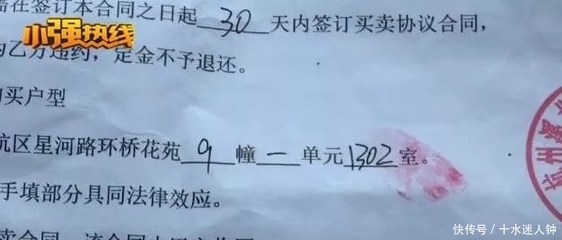 需在签订本合同之日起 30 天内签订买卖协议合同,
小强热线
为乙方违约,定金不予退还。
购买户型
杭区星河路环桥花苑 9 幢 一 单元1302室。
手填部分具同法律效应。
卖合同
杭州
快传号 / 十水迷人钟